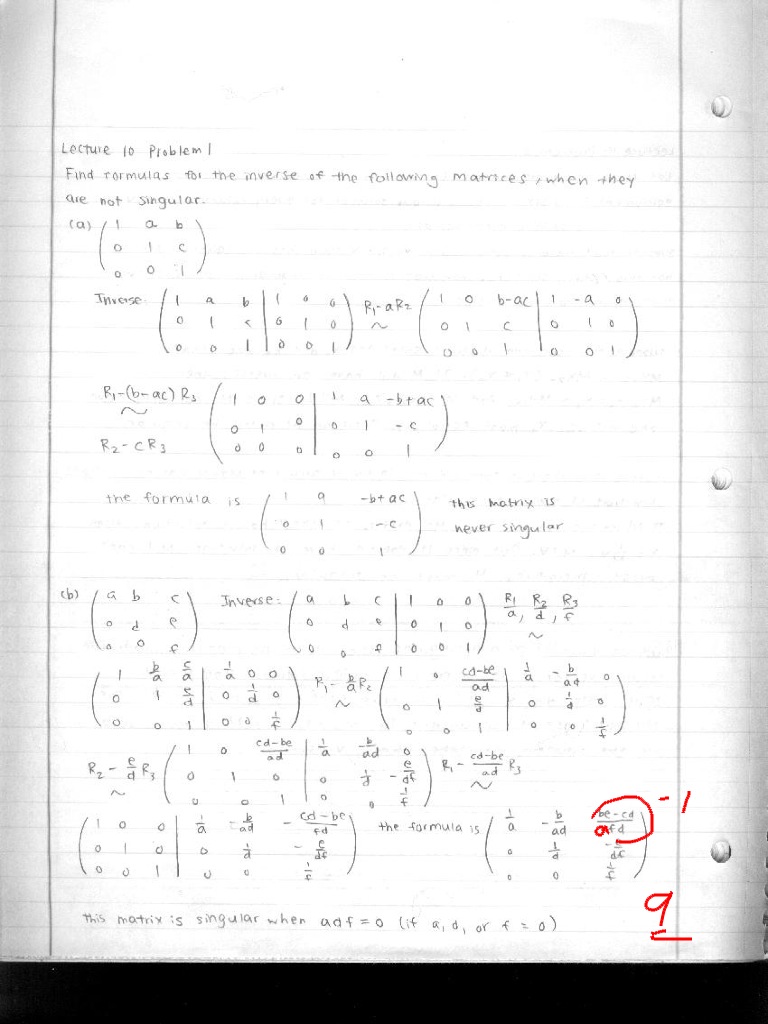 Lecture 10 Problem 1
Find formulas for the inverse of the following matrices, when they
are not singular.
(a) ( 1 a b
0 1 c
0 0 1 )
Inverse: ( 1 a b | 1 0 0
0 1 c | 0 1 0
0 0 1 | 0 0 1 ) R1-aR2 ~ ( 1 0 b-ac | 1 -a 0
0 1 c | 0 1 0
0 0 1 | 0 0 1 )
R1-(b-ac)R3 ~
R2-cR3 ( 1 0 0 | 1 a -b+ac
0 1 0 | 0 1 -c
0 0 0 | 0 0 1 )
the formula is ( 1 a -b+ac
0 1 -c
0 0 1 ) this matrix is
never singular
(b) ( a b c
0 d e
0 0 f ) Inverse: ( a b c | 1 0 0
0 d e | 0 1 0
0 0 f | 0 0 1 ) R1/a, R2/d, R3/f ~
( 1 b/a c/a | 1/a 0 0
0 1 e/d | 0 1/d 0
0 0 1 | 0 0 1/f ) R1 - b/a R2 ~ ( 1 0 cd-be/ad | 1/a -b/ad 0
0 1 e/d | 0 1/d 0
0 0 1 | 0 0 1/f )
R2 - e/d R3 ~ ( 1 0 cd-be/ad | 1/a -b/ad 0
0 1 0 | 0 1/d -e/df
0 0 1 | 0 0 1/f ) R1 - cd-be/ad R3 ~
( 1 0 0 | 1/a -b/ad -cd-be/fd
0 1 0 | 0 1/d -e/df
0 0 1 | 0 0 1/f ) the formula is ( 1/a -b/ad be-cd/afd
0 1/d -e/df
0 0 1/f ) -1
this matrix is singular when adf = 0 (if a, d, or f = 0)
9